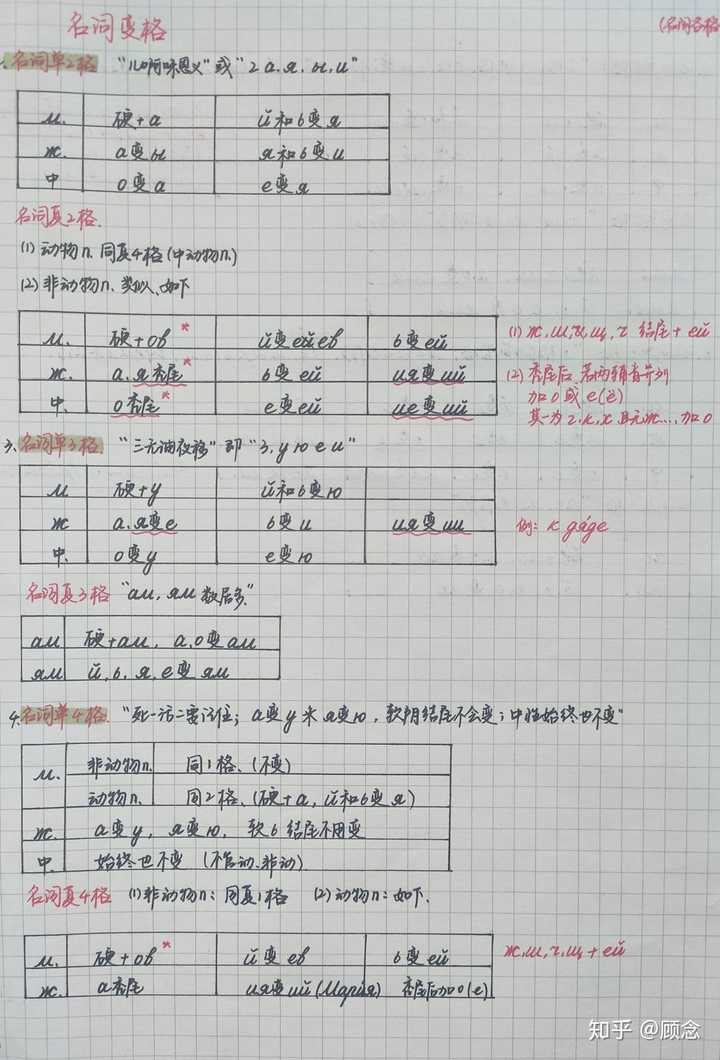 名词变格
(名词各格
名词单2格 "儿啊咪恩义"或"2 а.я.ы.и"
м. 硬+а й和ь变я
ж. а变ы я和ь变и
中 о变а е变я
名词复2格.
(1) 动物n. 同复4格(中动物n.)
(2) 非动物n. 类似、如下
м. 硬+ов * й变ев ь变ей
ж. а.я秃尾* ь变ей ия变ий
中. о秃尾* е变ей ие变ий
(1) ж,ш,ч,щ, 结尾+ей
(2) 秃尾后,若两辅音并列
加о或е(ё)
其一为г,к,х且无ж...,加о
3、名词单3格. "三无油夜移"即"3,у ю е и"
м 硬+у й和ь变ю
ж а.я变е ь变и ия变ии
中. о变у е变ю
例: к дяде
名词复3格 "ам, ям 数居多"
ам 硬+ам, а.о变ам
ям й.ь.я.е变ям
4.名词单4格. "死一活二要记住; а变у来я变ю, 软阴结尾不会变;中性始终也不变"
м. 非动物n. 同1格、(不变)
动物n. 同2格、(硬+а, й和ь变я)
ж. а变у, я变ю, 软ь结尾不用变
中. 始终也不变 (不管动.非动)
名词复4格 (1)非动物n: 同复1格 (2)动物n: 如下.
м. 硬+ов * й变ев ь变ей
ж. а秃尾 ия变ий (Мария) 秃尾后加о(е)
ж,ш,ч,щ+ей
知乎 @顾念